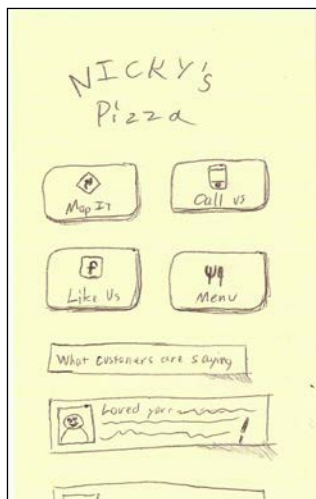 NICKY's
Pizza
Map It
Call us
Like Us
Menu
What customers are saying
Loved your